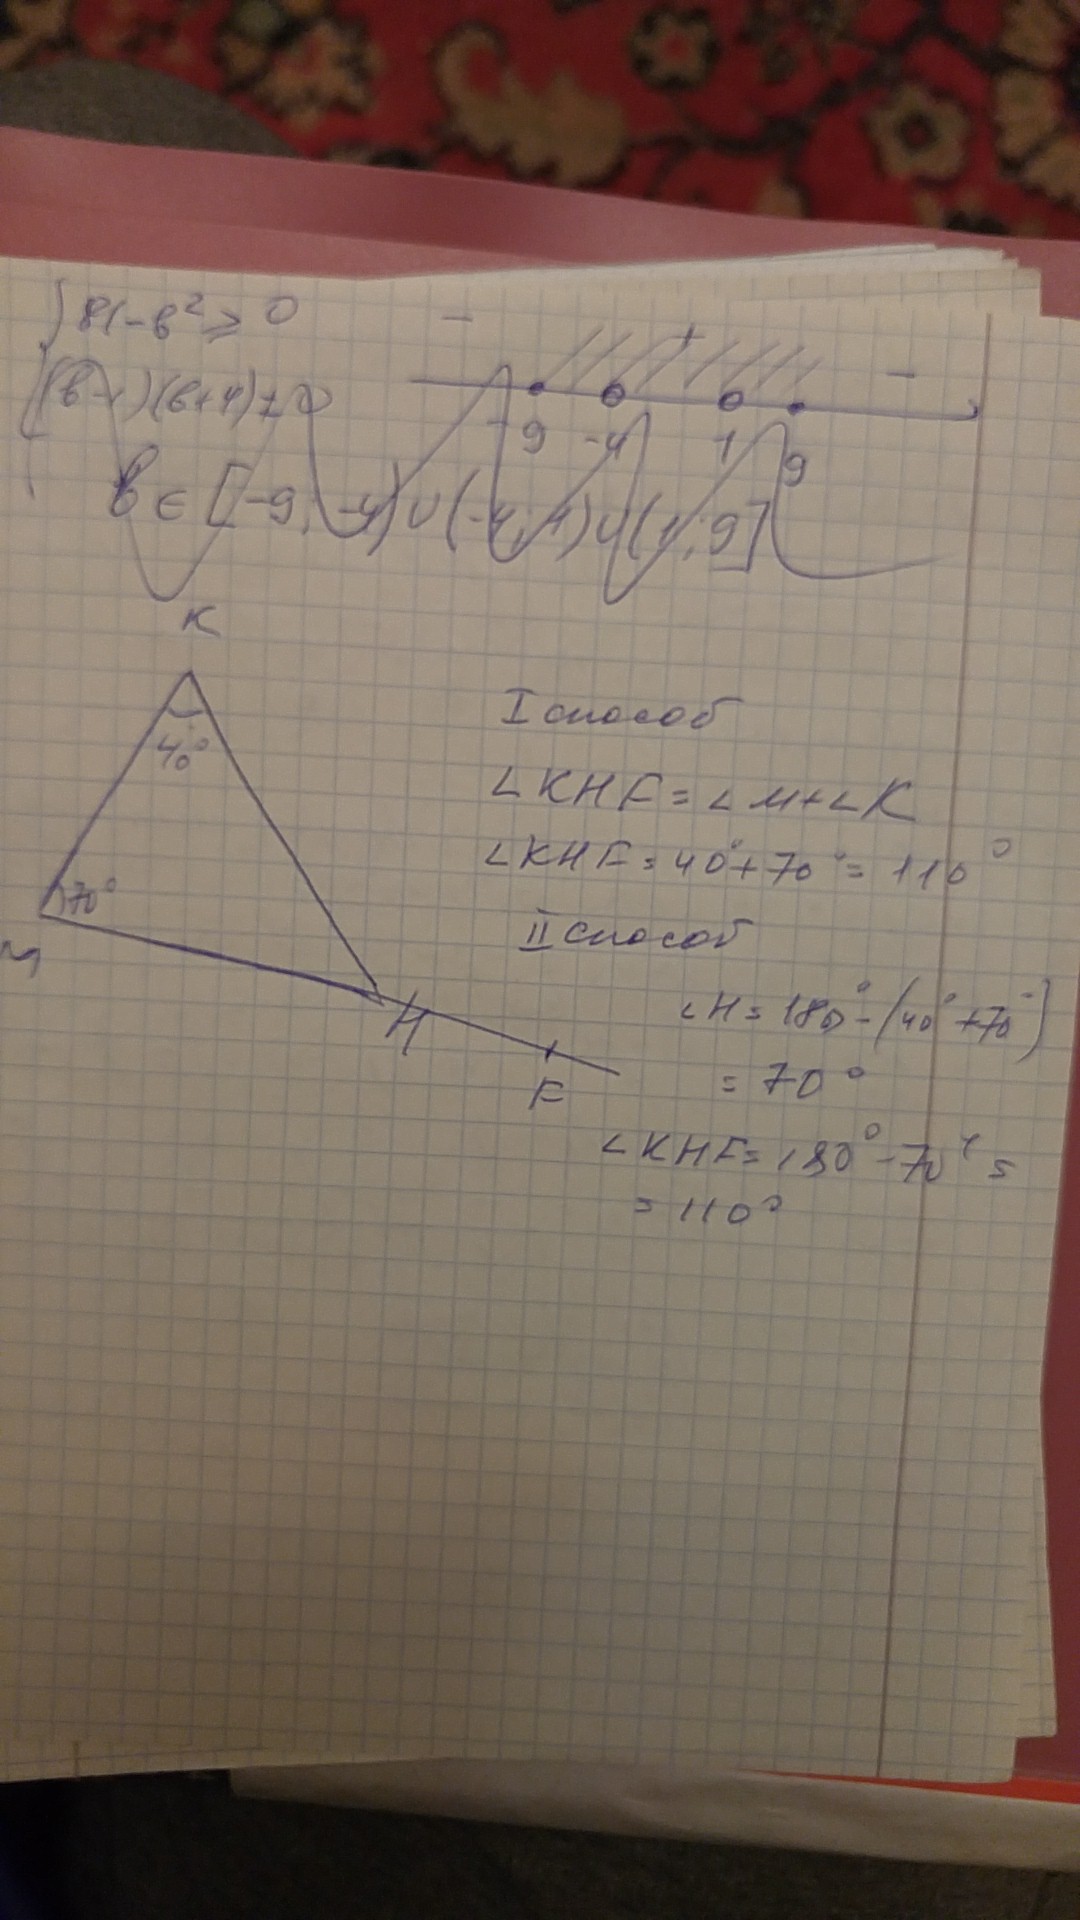 81-в² ≥ 0
(в-1)(в+4)≠0
- + -
-9 -4 1 9
в ∈ [-9;-4)∪(-4;1)∪(1;9]
K
40°
70°
M
H
F
I способ
∠KHF = ∠M+∠K
∠KHF = 40°+70° = 110°
II способ
∠H = 180° - (40° + 70°)
= 70°
∠KHF = 180° - 70° =
= 110°